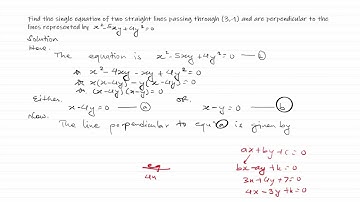 Find the single equation of two straight lines passing through (3,-1) and are perpendicular to the
lines represented by x²-5xy+4y²=0
Solution
Here,
The equation is x²-5xy+4y²=0
x²-4xy-xy+4y²=0
x(x-4y)-y(x-4y)=0
(x-4y)(x-y)=0
Either, OR
x-4y=0 — ⓐ x-y=0 — ⓑ
Now,
The line perpendicular to equⁿ ⓐ is given by
ax+by+c=0
bx-ay+k=0
3x+4y+7=0
4x-3y+k=0
4x